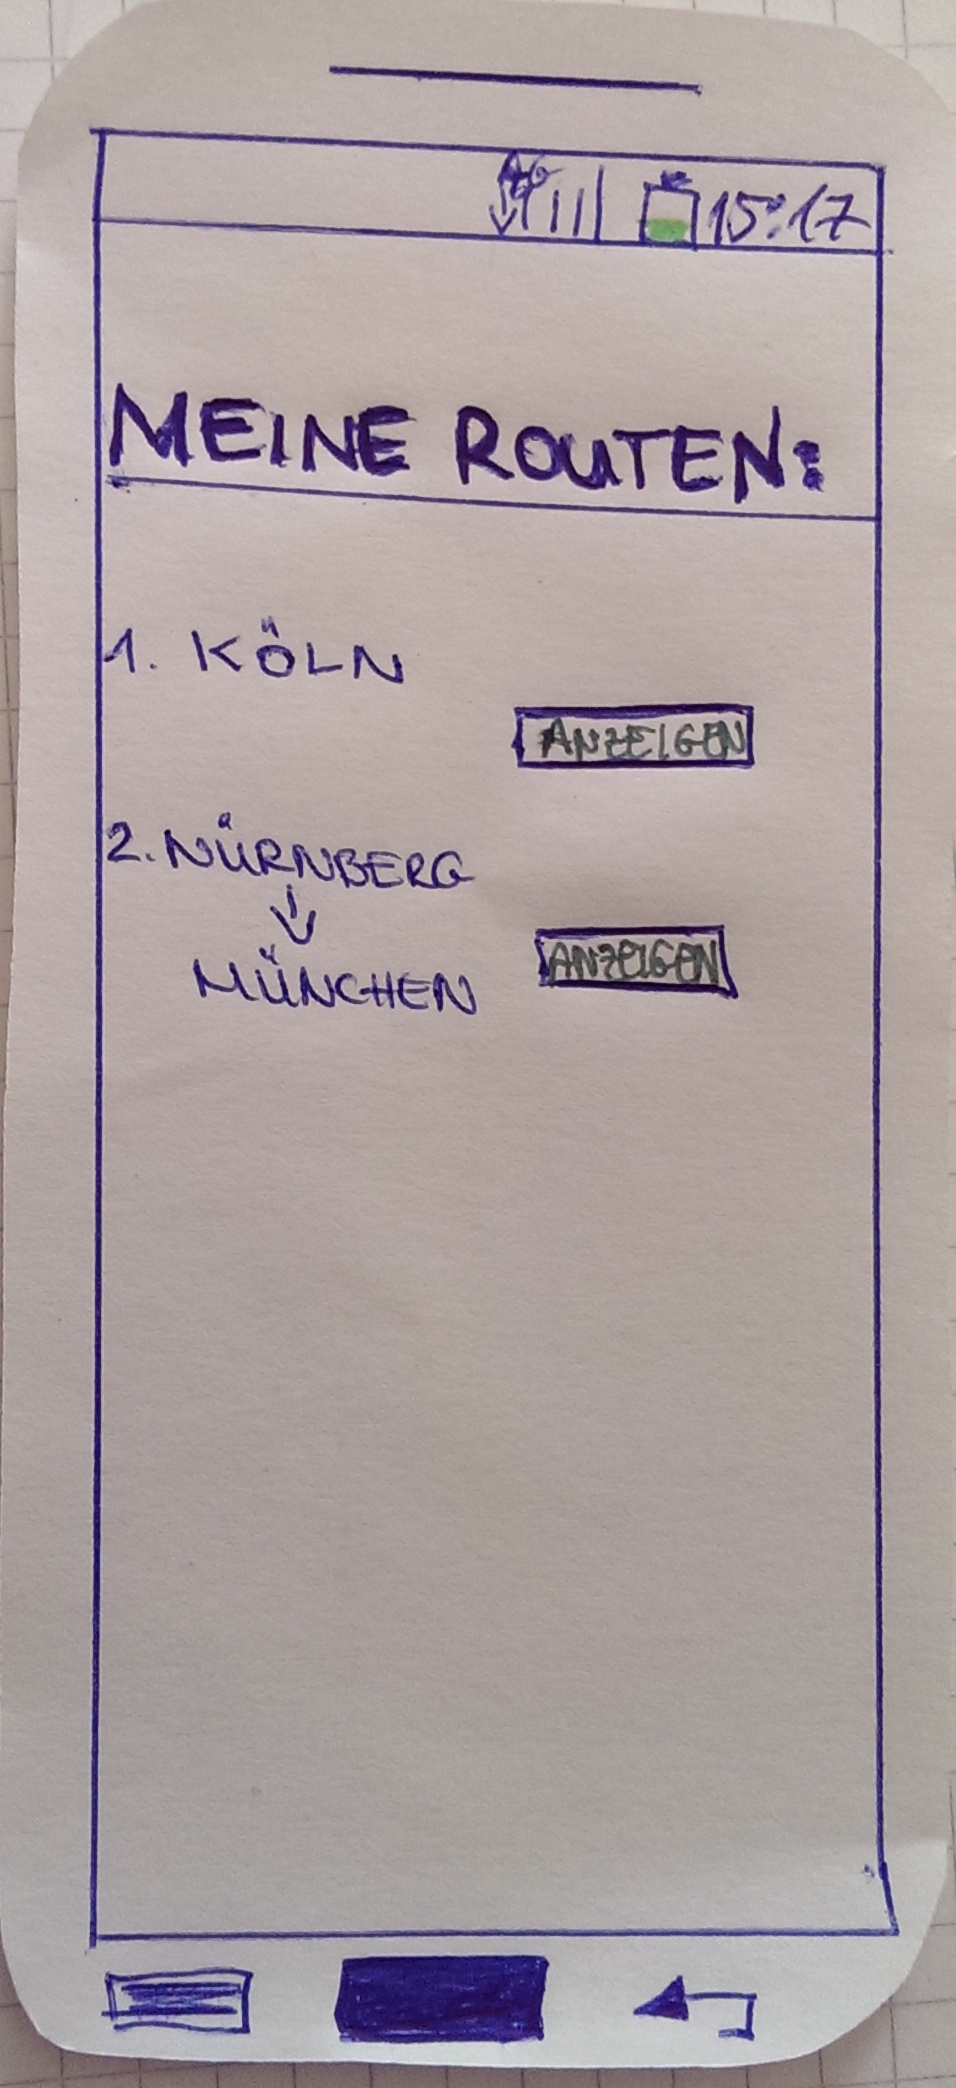 4G 15:17
MEINE ROUTEN:
1. KÖLN
ANZEIGEN
2. NÜRNBERG
↓
MÜNCHEN
ANZEIGEN